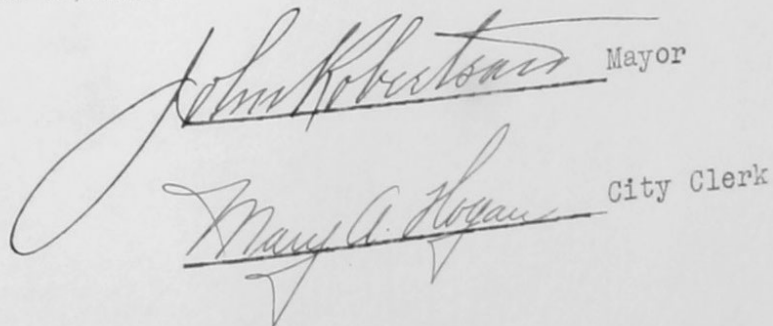 John Robertson Mayor
Mary A. Hogan City Clerk